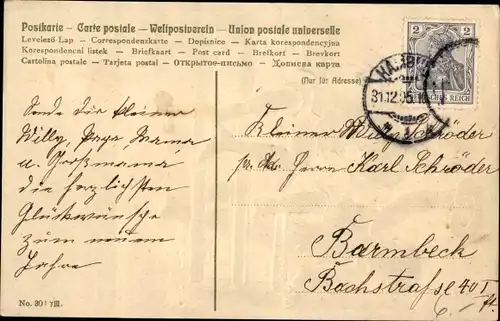 Postkarte — Carte postale — Weltpostverein — Union postale universelle
Levelező-Lap — Correspondenzkarte — Dopisnice — Karta korespondencyjna
Korespondenční lístek — Briefkaart — Post card — Brefkort — Brevkort
Cartolina postale — Tarjeta postal — Открытое-письмо — Дописна карта
(Nur für Adresse)
2 2
REICH
31.12.05.
Sende dir kleiner
Willy, Papa Mama
u. Großmama
die herzlichsten
Glückwünsche
zum neuen
Jahre
Kleiner Willy Schröder
Herren Karl Schröder
Barmbeck
Bachstraße 40 I
No. 30